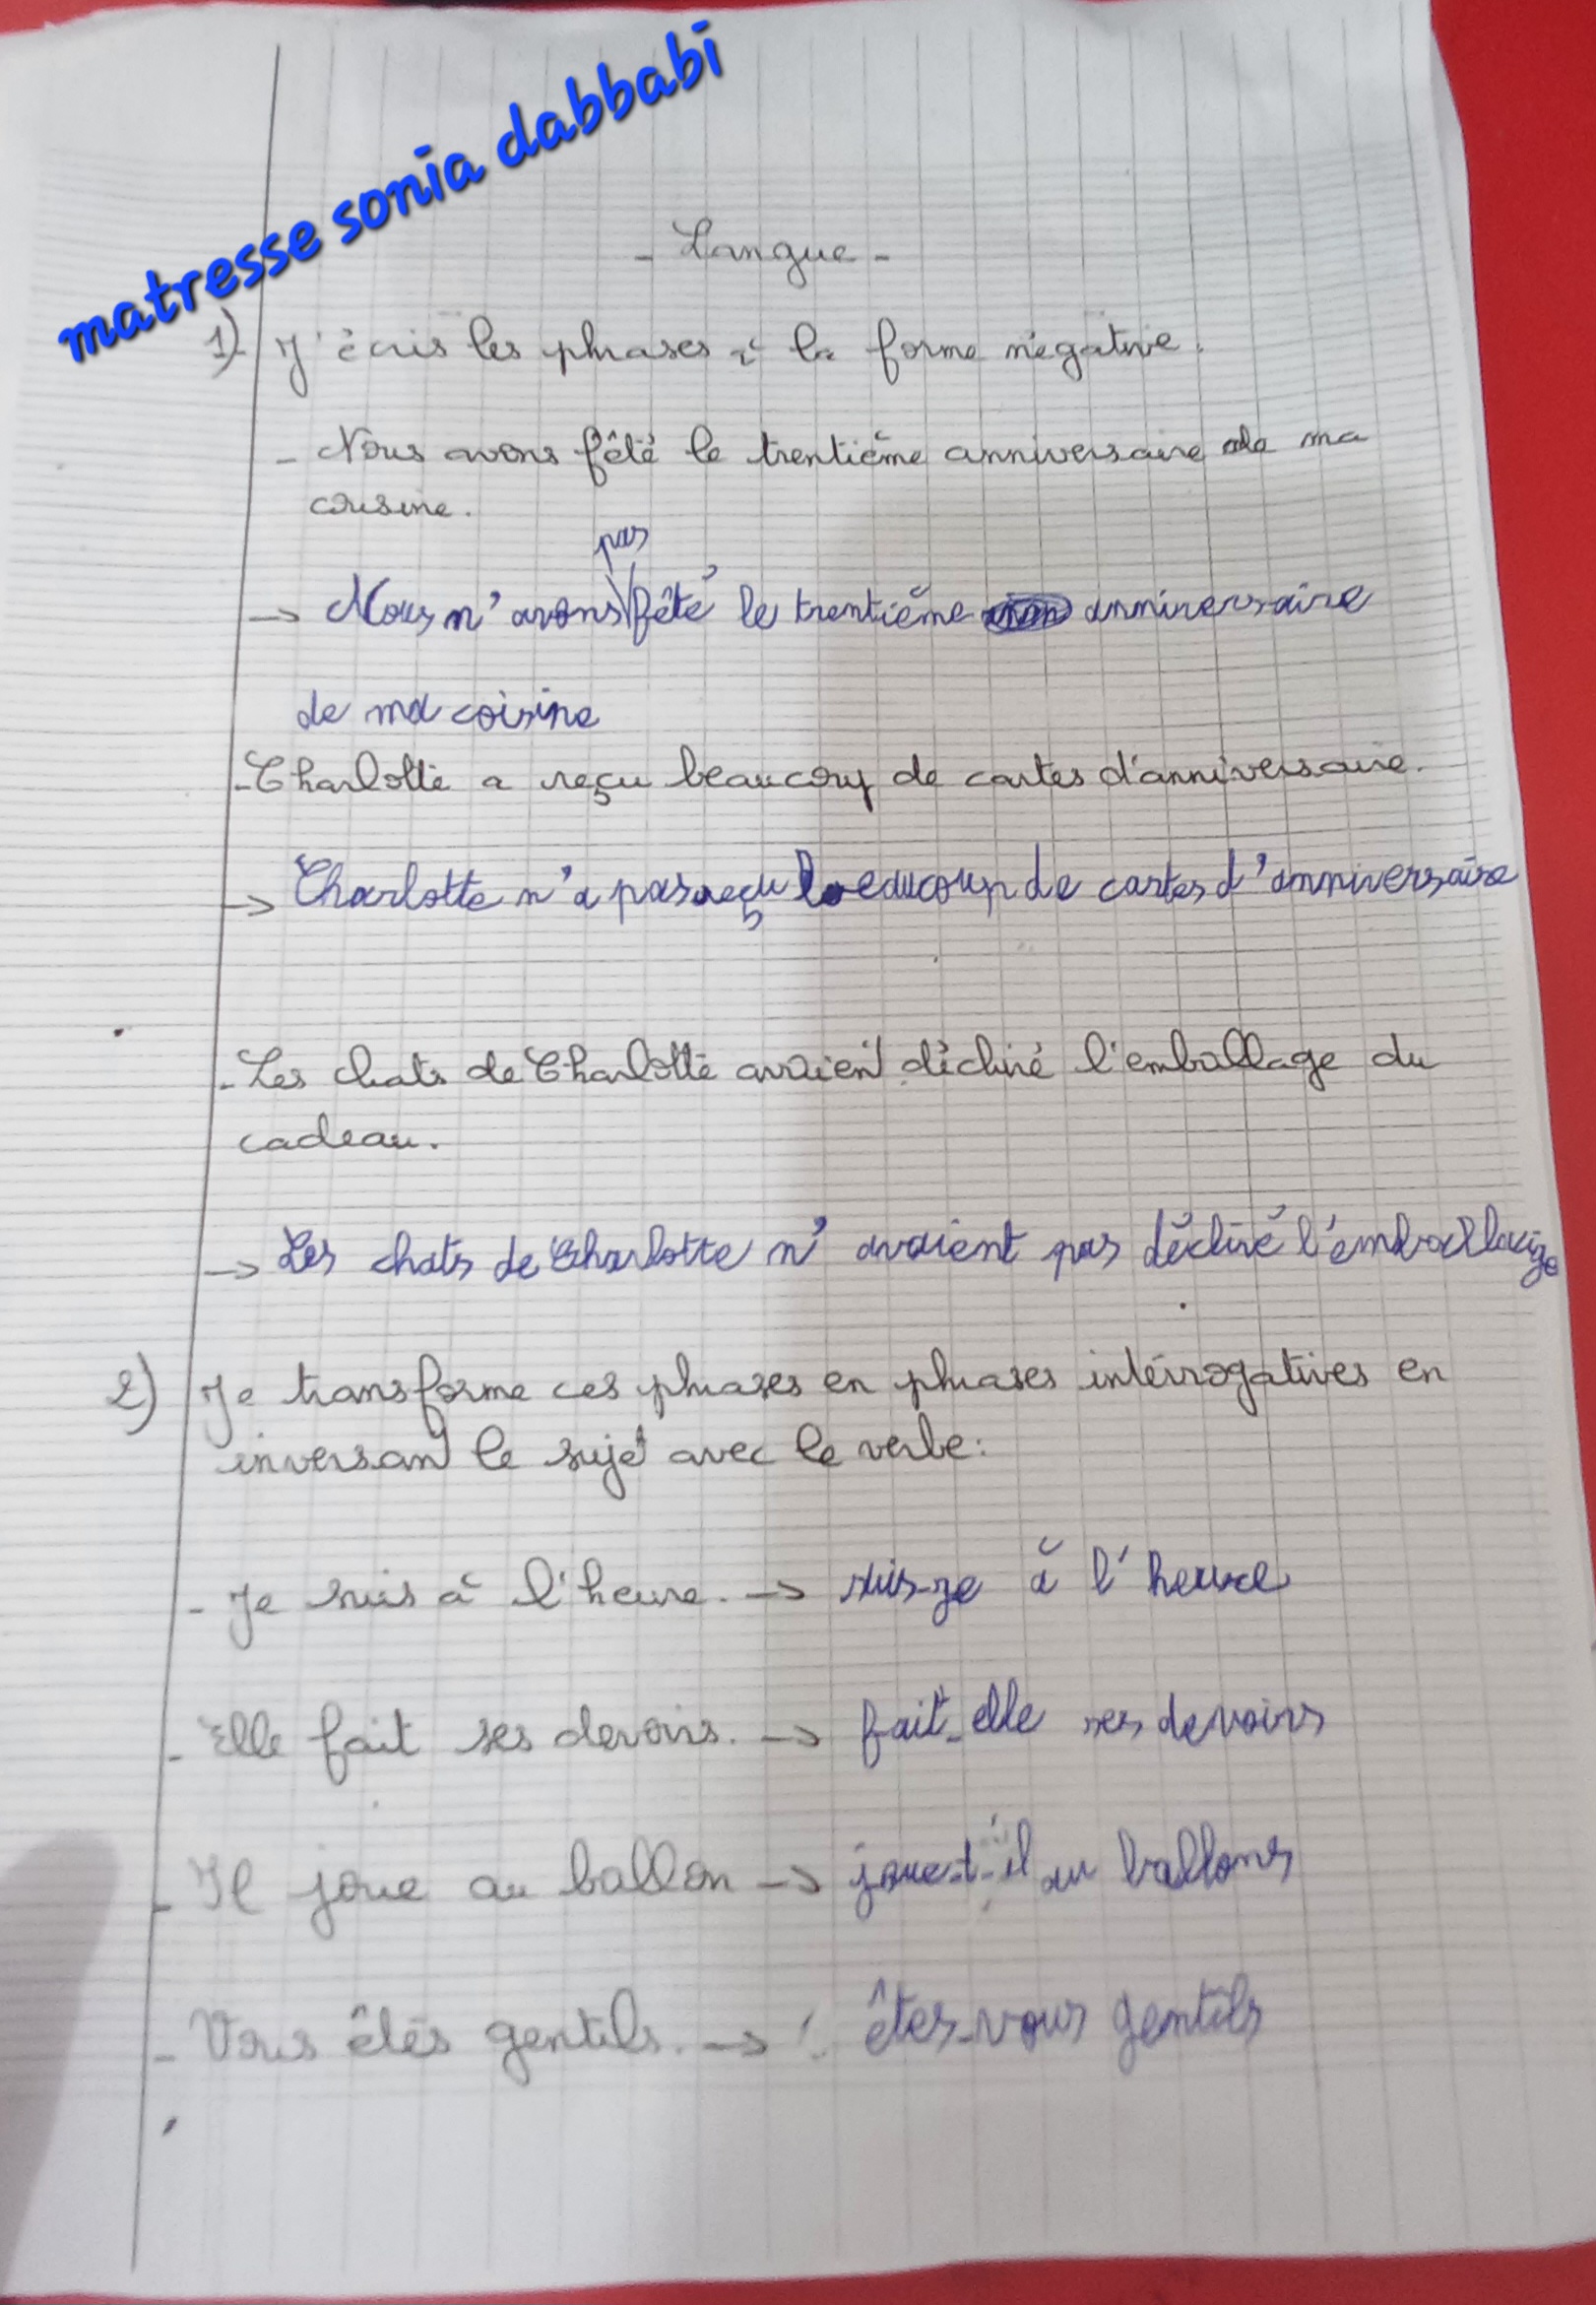 matresse sonia dabbabi
- Langue -
1) J'écris les phrases à la forme négative.
- Nous avons fêté le trentième anniversaire de ma
cousine.
pas
→ Nous n'avons fêté le trentième anniversaire
de ma coisine
- Charlotte a reçu beaucoup de cartes d'anniversaire.
→ Charlotte n'a pas reçu beaucoup de cartes d'anniversaire
- Les chats de Charlotte avaient déchiré l'emballage du
cadeau.
→ Les chats de Charlotte n'avaient pas déchiré l'emballage
2) Je transforme ces phrases en phrases intérrogatives en
inversant le sujet avec le verbe:
- Je suis à l'heure. → suis-je à l'heure
- Elle fait ses devoirs. → fait-elle ses devoirs
- Il joue au ballon → joue-t-il au ballons
- Vous êtes gentils. → êtes-vous gentils